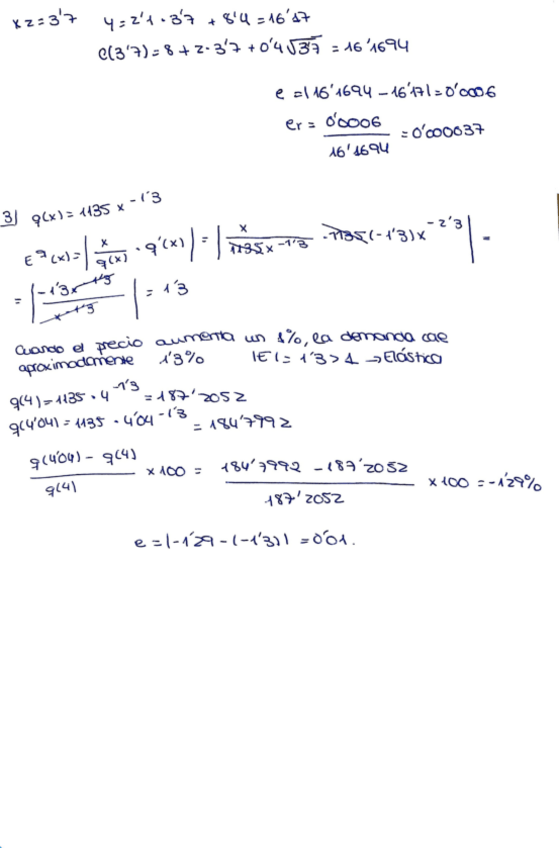 x2=3'7 y=2'1·3'7 + 8'4=16'17
C(3'7)=8+2·3'7+0'4√3'7 = 16'1694
e =|16'1694 - 16'17|=0'0006
er = 0'0006/16'1694 = 0'000037
3) q(x)= 1135 x^-1'3
E^q(x)=|x/q(x) · q'(x)| = |x/1135x^-1'3 · 1135(-1'3)x^-2'3| =
= |-1'3x^-1'3/x^-1'3| = 1'3
Cuando el precio aumenta un 1%, la demanda cae
aproximadamente 1'3% |E|= 1'3>1 →Elástica
q(4)=1135·4^-1'3=187'2052
q(4'04)=1135·4'04^-1'3 = 184'7992
q(4'04) - q(4)/q(4) x100 = 184'7992 - 187'2052/187'2052 x100 =-1'29%
e =|-1'29-(-1'3)| =0'01.